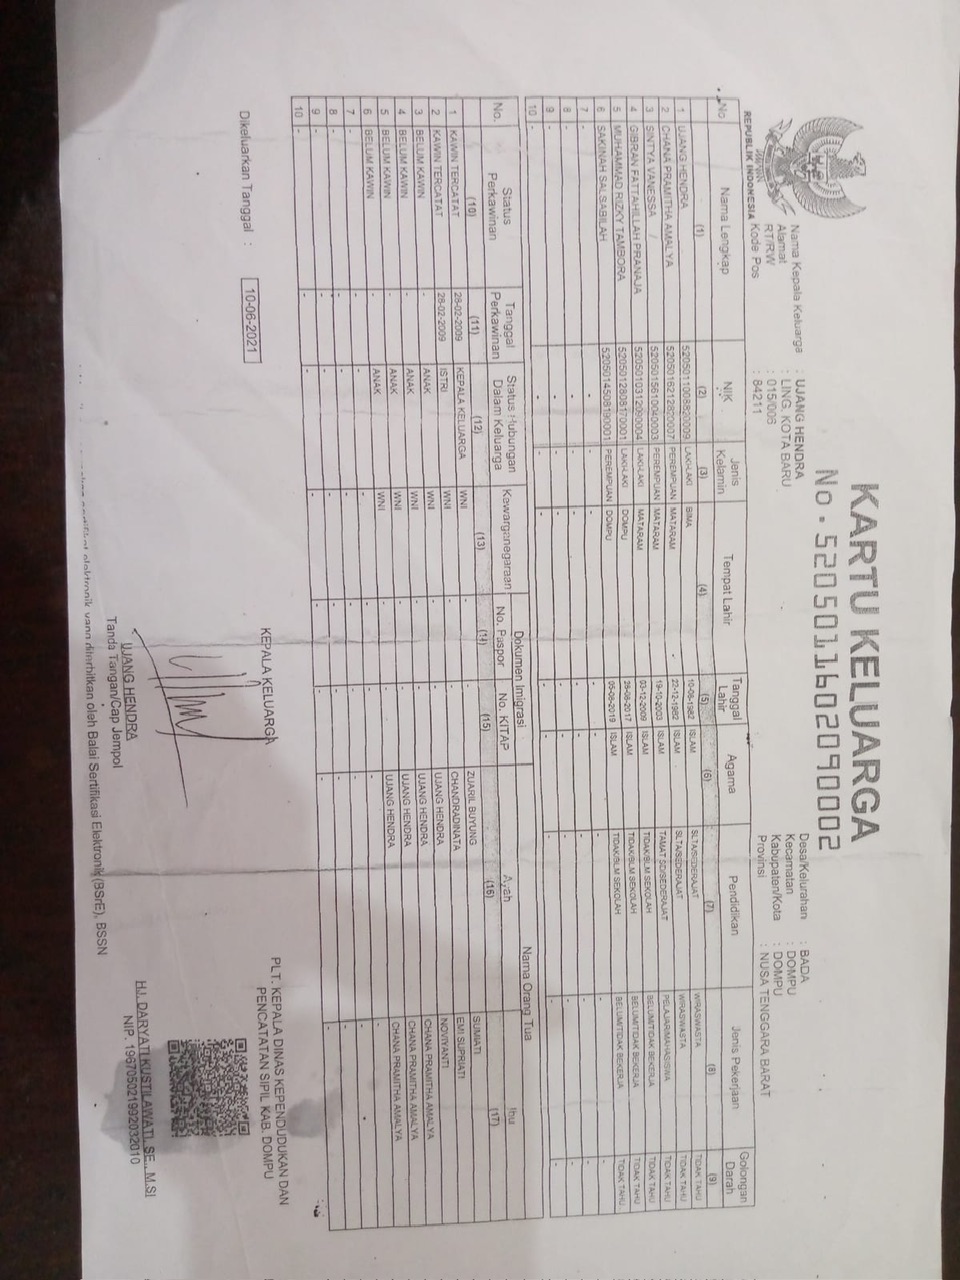 KARTU KELUARGA
No. 5205011602090002
REPUBLIK INDONESIA
Nama Kepala Keluarga : UJANG HENDRA
Alamat : LING. KOTA BARU
RT/RW : 015/006
Kode Pos : 84211
Desa/Kelurahan : BADA
Kecamatan : DOMPU
Kabupaten/Kota : DOMPU
Provinsi : NUSA TENGGARA BARAT
No Nama Lengkap NIK Jenis Kelamin Tempat Lahir Tanggal Lahir Agama Pendidikan Jenis Pekerjaan Golongan Darah
(1) (2) (3) (4) (5) (6) (7) (8) (9)
1 UJANG HENDRA 5205011008820009 LAKI-LAKI BIMA 10-08-1982 ISLAM SLTA/SEDERAJAT WIRASWASTA TIDAK TAHU
2 CHANA PRAMITHA AMALYA 5205016212820007 PEREMPUAN MATARAM 22-12-1982 ISLAM SLTA/SEDERAJAT WIRASWASTA TIDAK TAHU
3 SINTYA VANESSA 5205015610040003 PEREMPUAN MATARAM ISLAM TAMAT SD/SEDERAJAT PELAJAR/MAHASISWA TIDAK TAHU
4 GIBRAN FATTAHILLAH PRANAJA 5205010312090004 LAKI-LAKI MATARAM 03-12-2009 ISLAM TIDAK/BLM SEKOLAH BELUM/TIDAK BEKERJA TIDAK TAHU
5 MUHAMMAD RIZKY TAMBORA 5205012808170001 LAKI-LAKI DOMPU 28-08-2017 ISLAM TIDAK/BLM SEKOLAH BELUM/TIDAK BEKERJA TIDAK TAHU
6 SAKINAH SALSABILAH 5205014508190001 PEREMPUAN DOMPU 05-08-2019 ISLAM TIDAK/BLM SEKOLAH BELUM/TIDAK BEKERJA TIDAK TAHU
7 - - - - - - - - -
8 - - - - - - - - -
9 - - - - - - - - -
10 - - - - - - - - -
No. Status Perkawinan Tanggal Perkawinan Status Hubungan Dalam Keluarga Kewarganegaraan Dokumen Imigrasi Nama Orang Tua
No. Paspor No. KITAP Ayah Ibu
(10) (11) (12) (13) (14) (15) (16) (17)
1 KAWIN TERCATAT 28-02-2009 KEPALA KELUARGA WNI - - ZUARIL BUYUNG SUMIATI
2 KAWIN TERCATAT 28-02-2009 ISTRI WNI - - CHANDRADINATA EMI SUPRIATI
3 BELUM KAWIN - ANAK WNI - - UJANG HENDRA NOVIYANTI
4 BELUM KAWIN - ANAK WNI - - UJANG HENDRA CHANA PRAMITHA AMALYA
5 BELUM KAWIN - ANAK WNI - - UJANG HENDRA CHANA PRAMITHA AMALYA
6 BELUM KAWIN - ANAK WNI - - UJANG HENDRA CHANA PRAMITHA AMALYA
7 - - - - - - - -
8 - - - - - - - -
9 - - - - - - - -
10 - - - - - - - -
Dikeluarkan Tanggal : 10-06-2021
KEPALA KELUARGA
UJANG HENDRA
Tanda Tangan/Cap Jempol
PLT. KEPALA DINAS KEPENDUDUKAN DAN
PENCATATAN SIPIL KAB. DOMPU
HJ. DARYATI KUSTILAWATI, SE., M.SI
NIP. 196705021992032010
elektronik yang diterbitkan oleh Balai Sertifikasi Elektronik (BSrE), BSSN